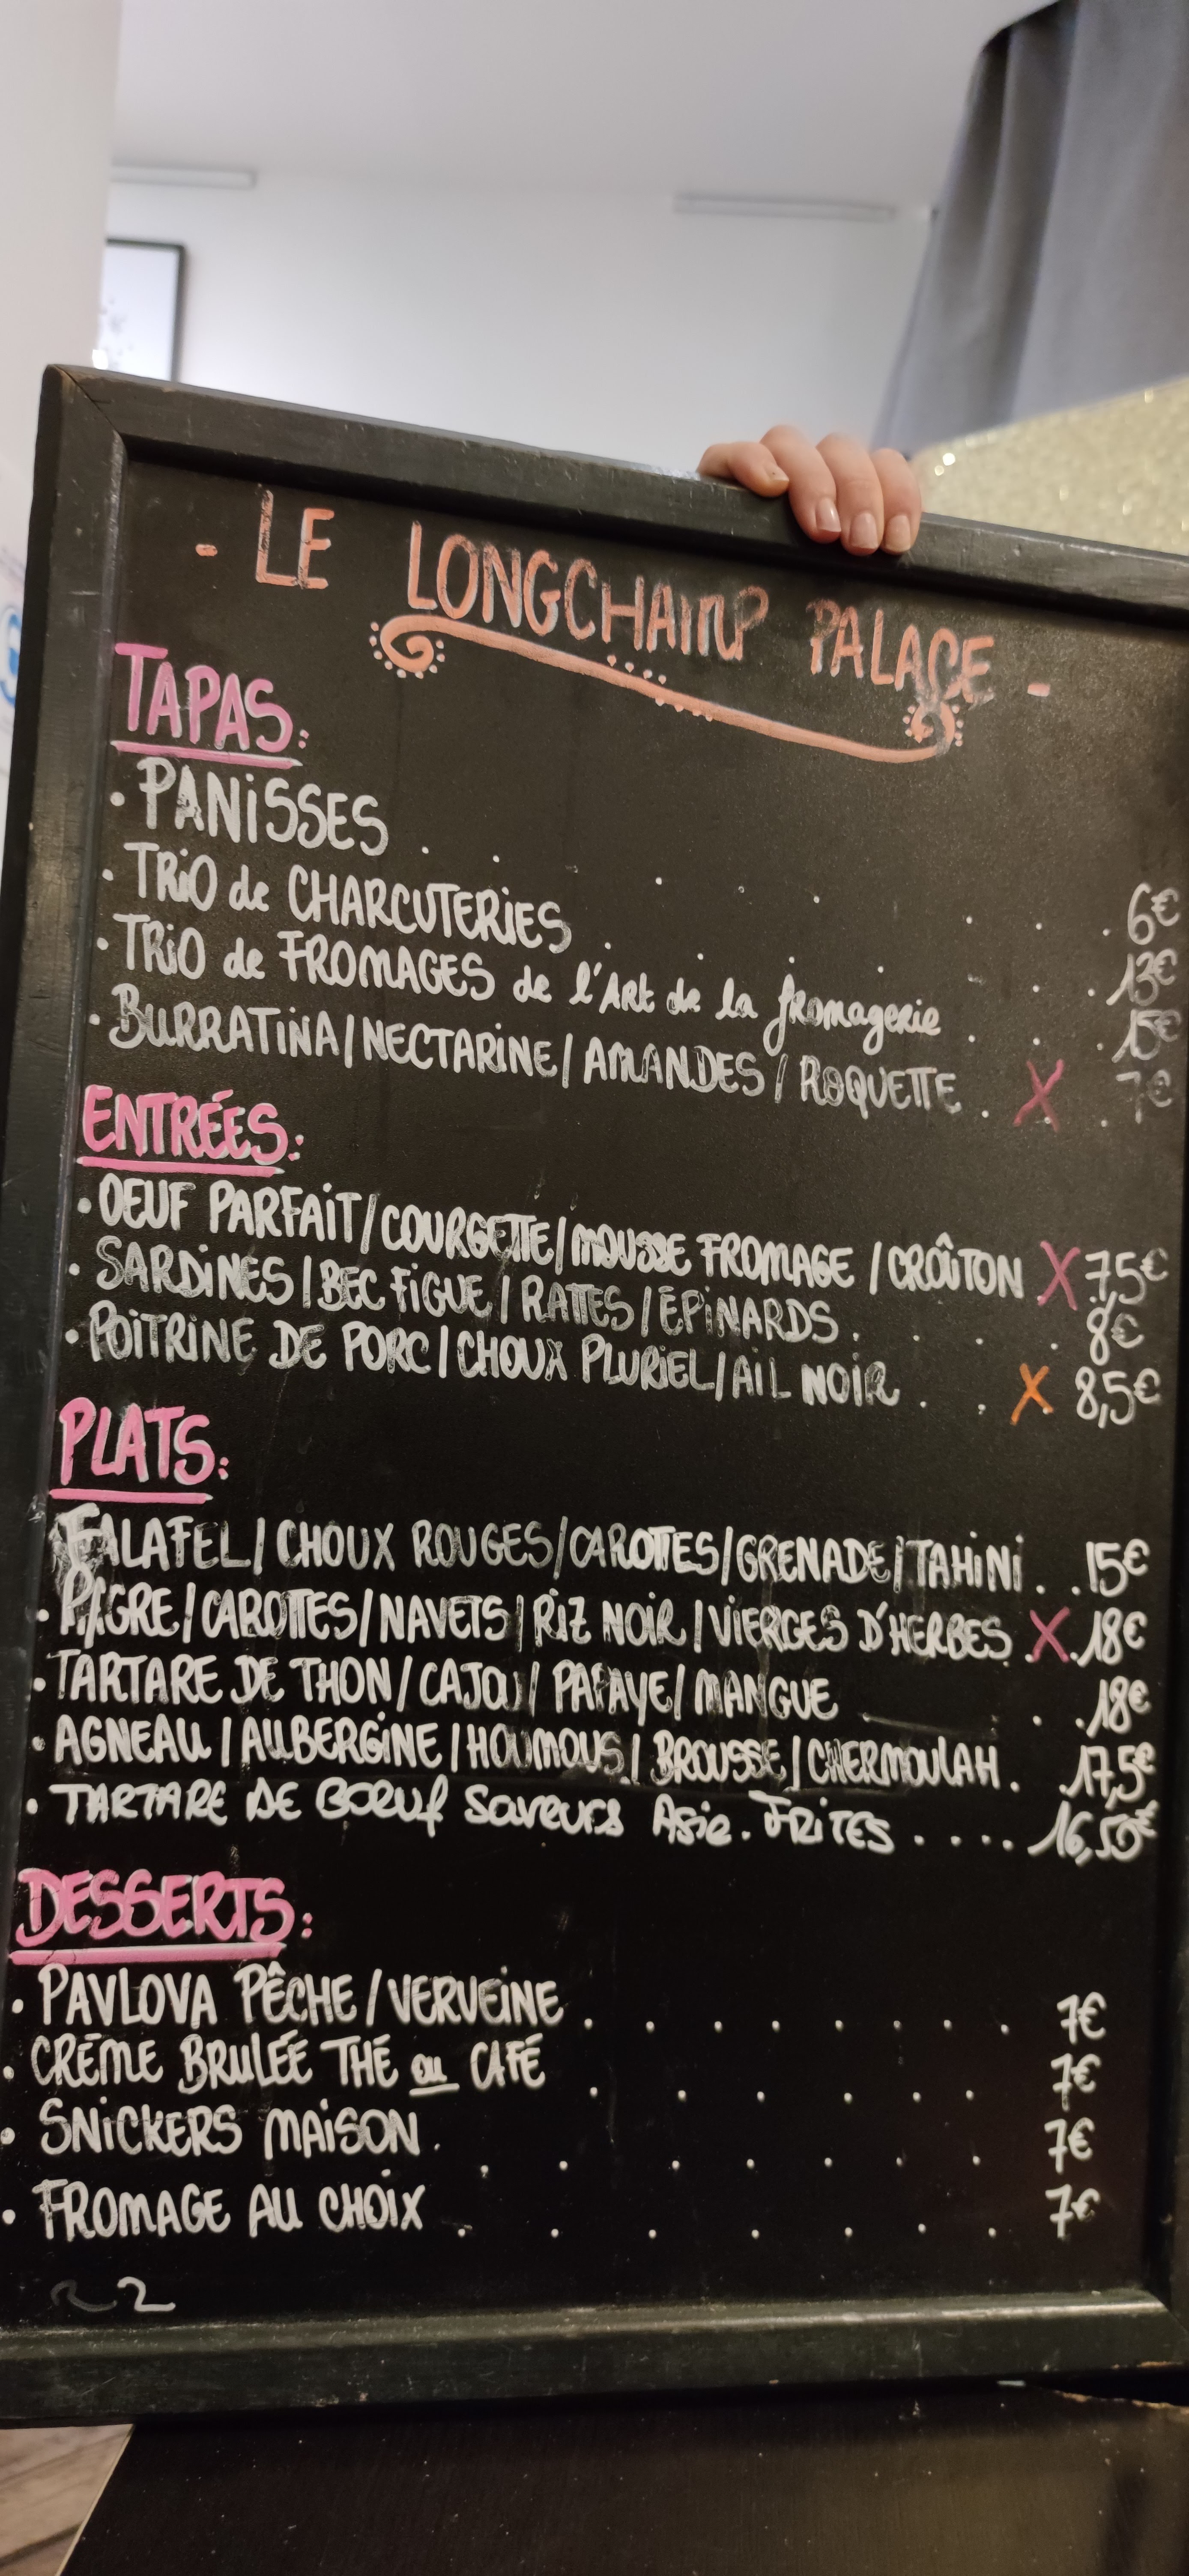 - LE LONGCHAMP PALACE -
TAPAS:
• PANiSSES . . . . . . . . 6€
• TRiO de CHARCUTERIES . . . . . . . 13€
• TRiO de FROMAGES de l'ARt de la fromagerie . . . 15€
• BURRATiNA/NECTARINE/AMANDES/ROQUETTE . X . 7€
ENTRÉES:
• OEUF PARFAiT/COURGETTE/MOUSSE FROMAGE/CROÛTON X 7,5€
• SARDiNES/BEC FiGUE/RATTES/ÉPiNARDS . . . . 8€
• POiTRINE DE PORC/CHOUX PLURiEL/AiL NOiR . . X 8,5€
PLATS:
FALAFEL/CHOUX ROUGES/CAROTTES/GRENADE/TAHiNi . . 15€
• PAGRE/CAROTTES/NAVETS/RiZ NOiR/ViERGES D'HERBES . X . 18€
• TARTARE DE THON/CAJOU/PAPAYE/MANGUE . . 18€
• AGNEAU/AUBERGiNE/HOUMOUS/BROUSSE/CHERMOULAH . 17,5€
• TARTARE DE BOEUf SaVEURS Asie. FRiTES . . . . 16,50€
DESSERTS:
• PAVLOVA PÊCHE/VERVEiNE . . . . . . . 7€
• CRÈME BRULÉE THÉ ou CAFÉ . . . . . . 7€
• SNiCKERS MAiSON . . . . . . . 7€
• FROMAGE AU CHOiX . . . . . . . 7€